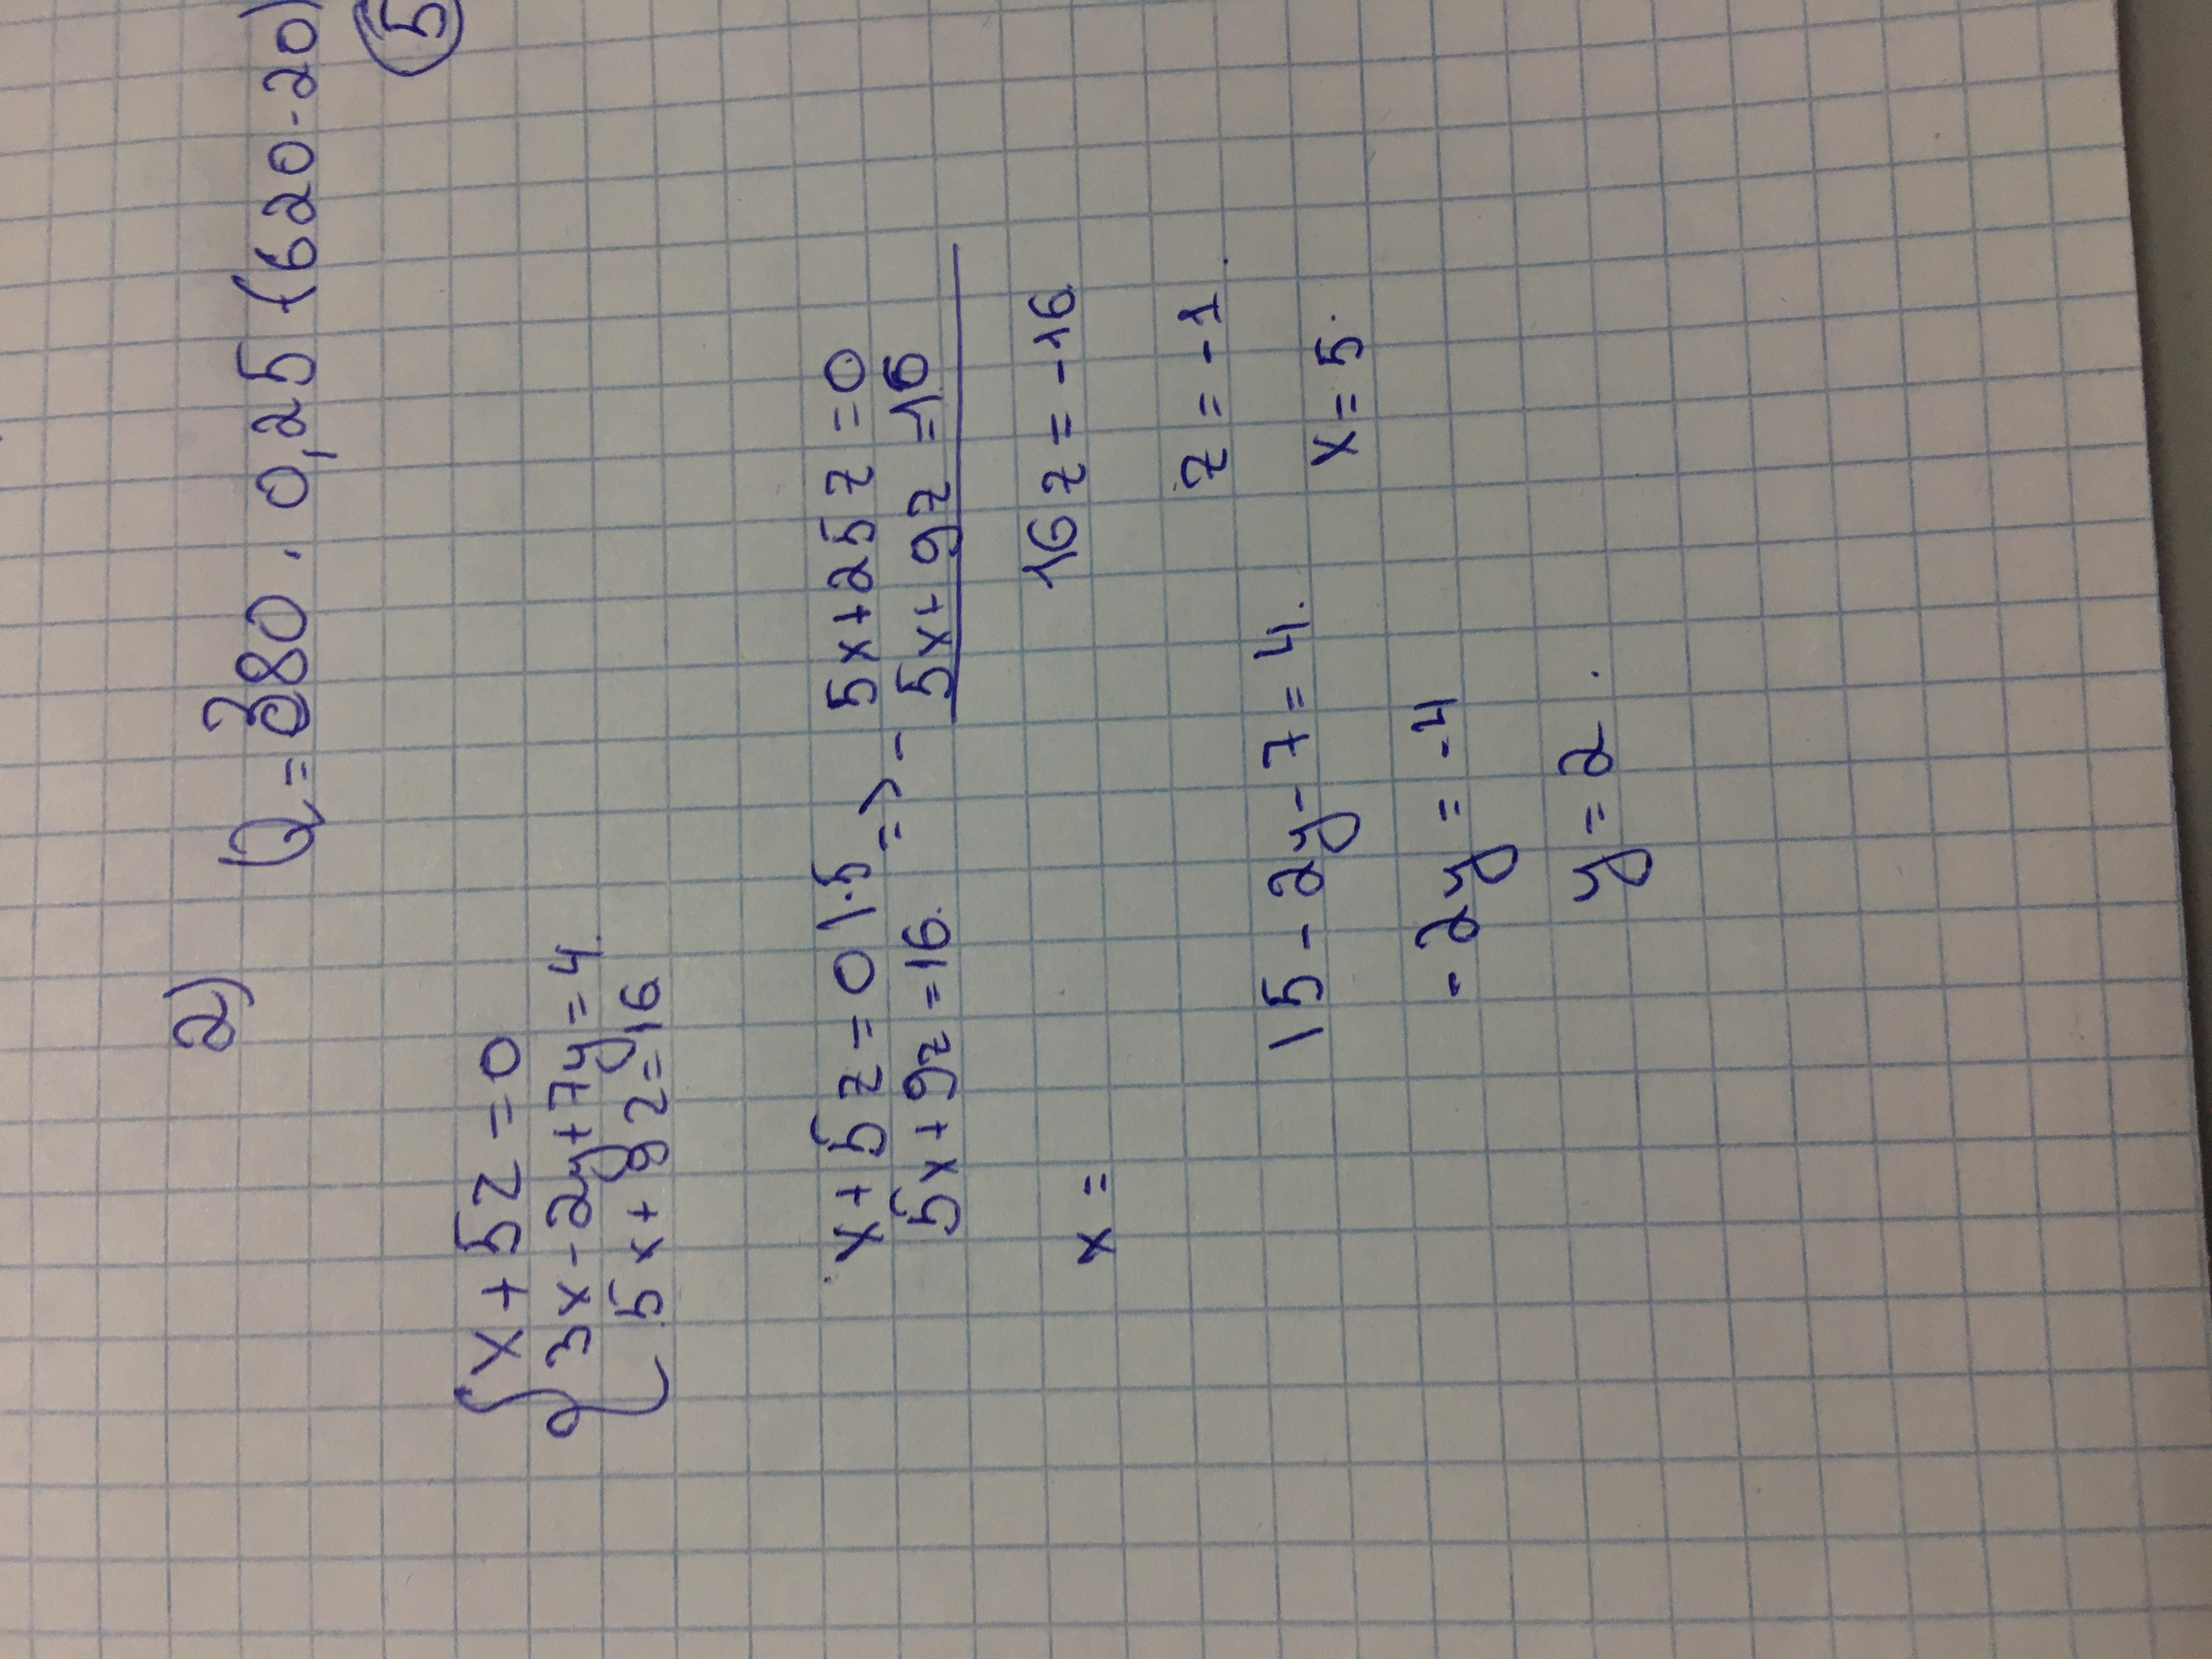 2) Q = 380 · 0,25 (620-20)
5
x + 5z = 0
3x - 2y + 7y = 4
5x + 9z = 16
x + 5z = 0 | · 5 => - 5x + 25z = 0
5x + 9z = 16. 5x + 9z = 16
16z = -16
x = z = -1
15 - 2y - 7 = 4. x = 5.
- 2y = -4
y = 2.